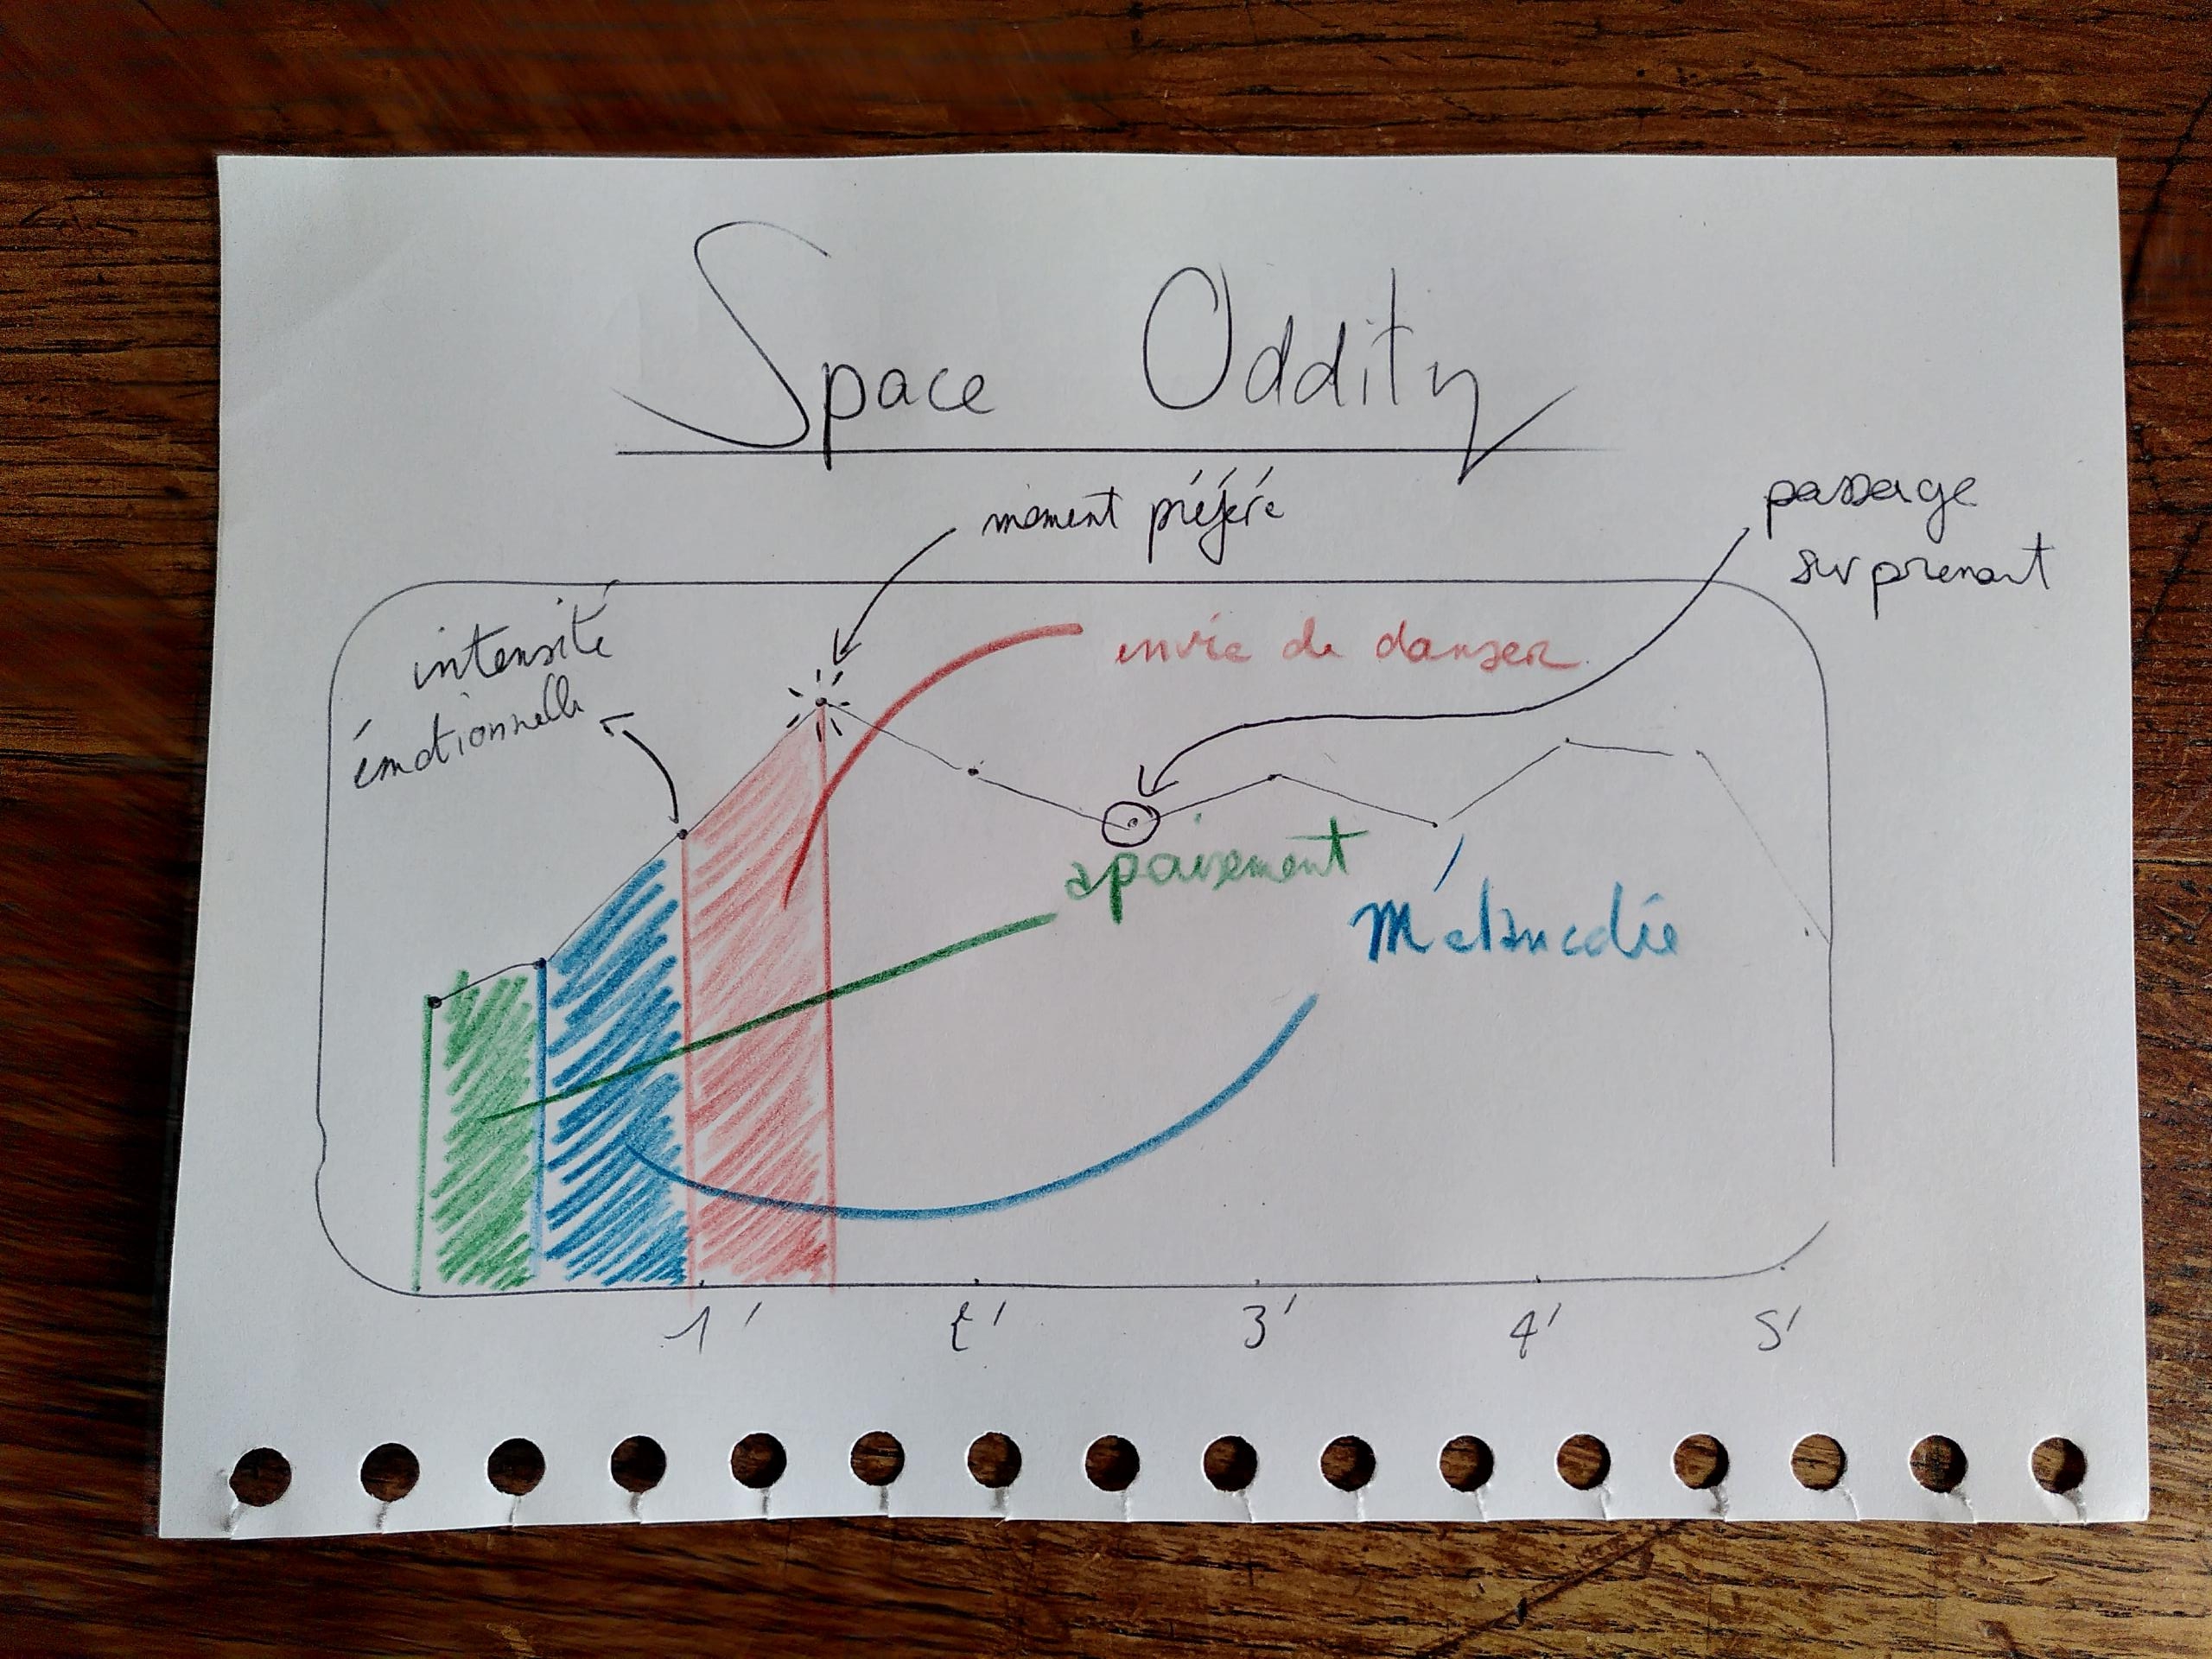 Space Oddity
moment préféré
passage
surprenant
intensité
émotionnelle
envie de danser
apaisement
Mélancolie
1' 2' 3' 4' 5'